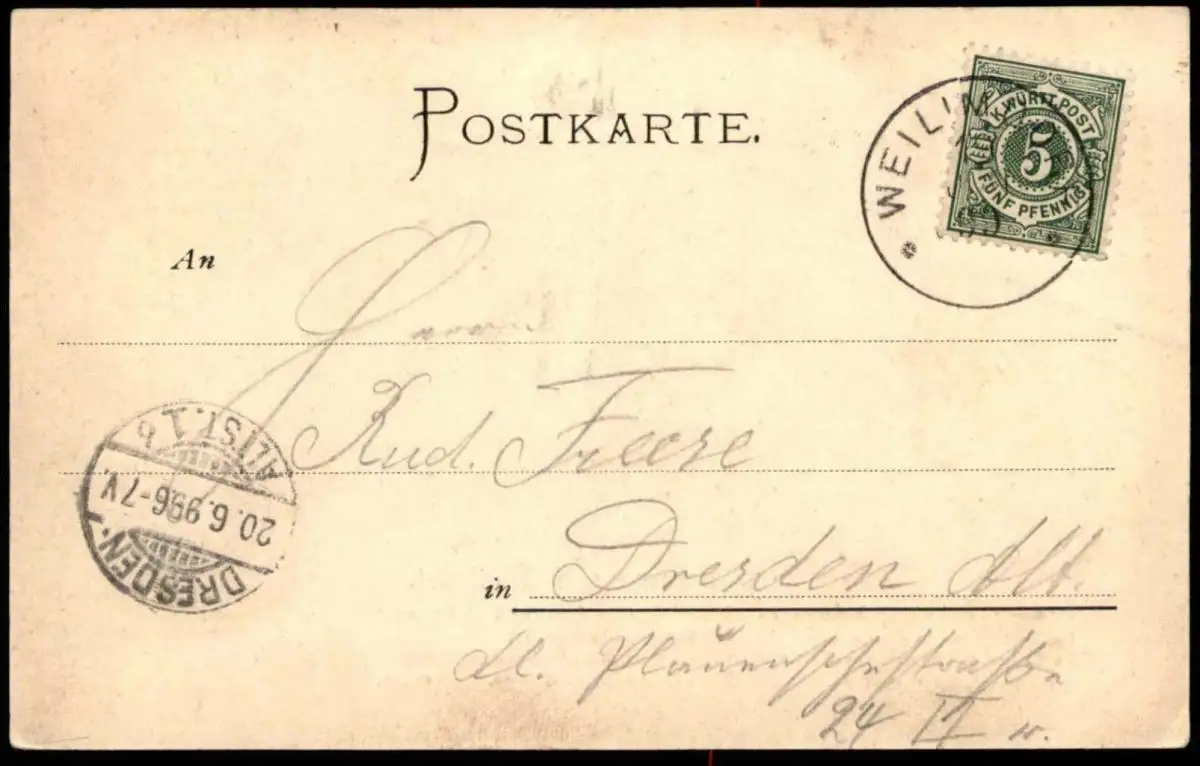 POSTKARTE.
K. WÜRTT. POST
5
FÜNF PFENNIG
WEILIM
An
Herrn
Rud. Freese
in Dresden Alt.
kl. Plauenschestraße
24 II w.
DRESDEN.
20.6.99.6-7V.
ALTST. 1 b